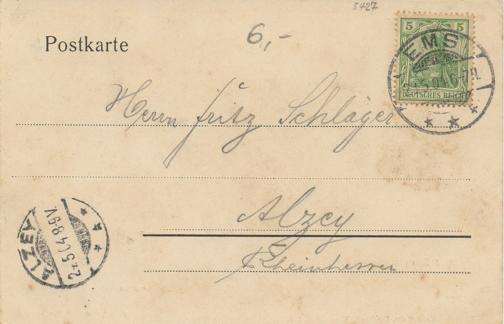 5427
6,-
Postkarte
5 5
DEUTSCHES REICH
EMS
Herrn Fritz Schläger
Alzey
Rheinhessen
ALZEY
2.5.04.8-9V.